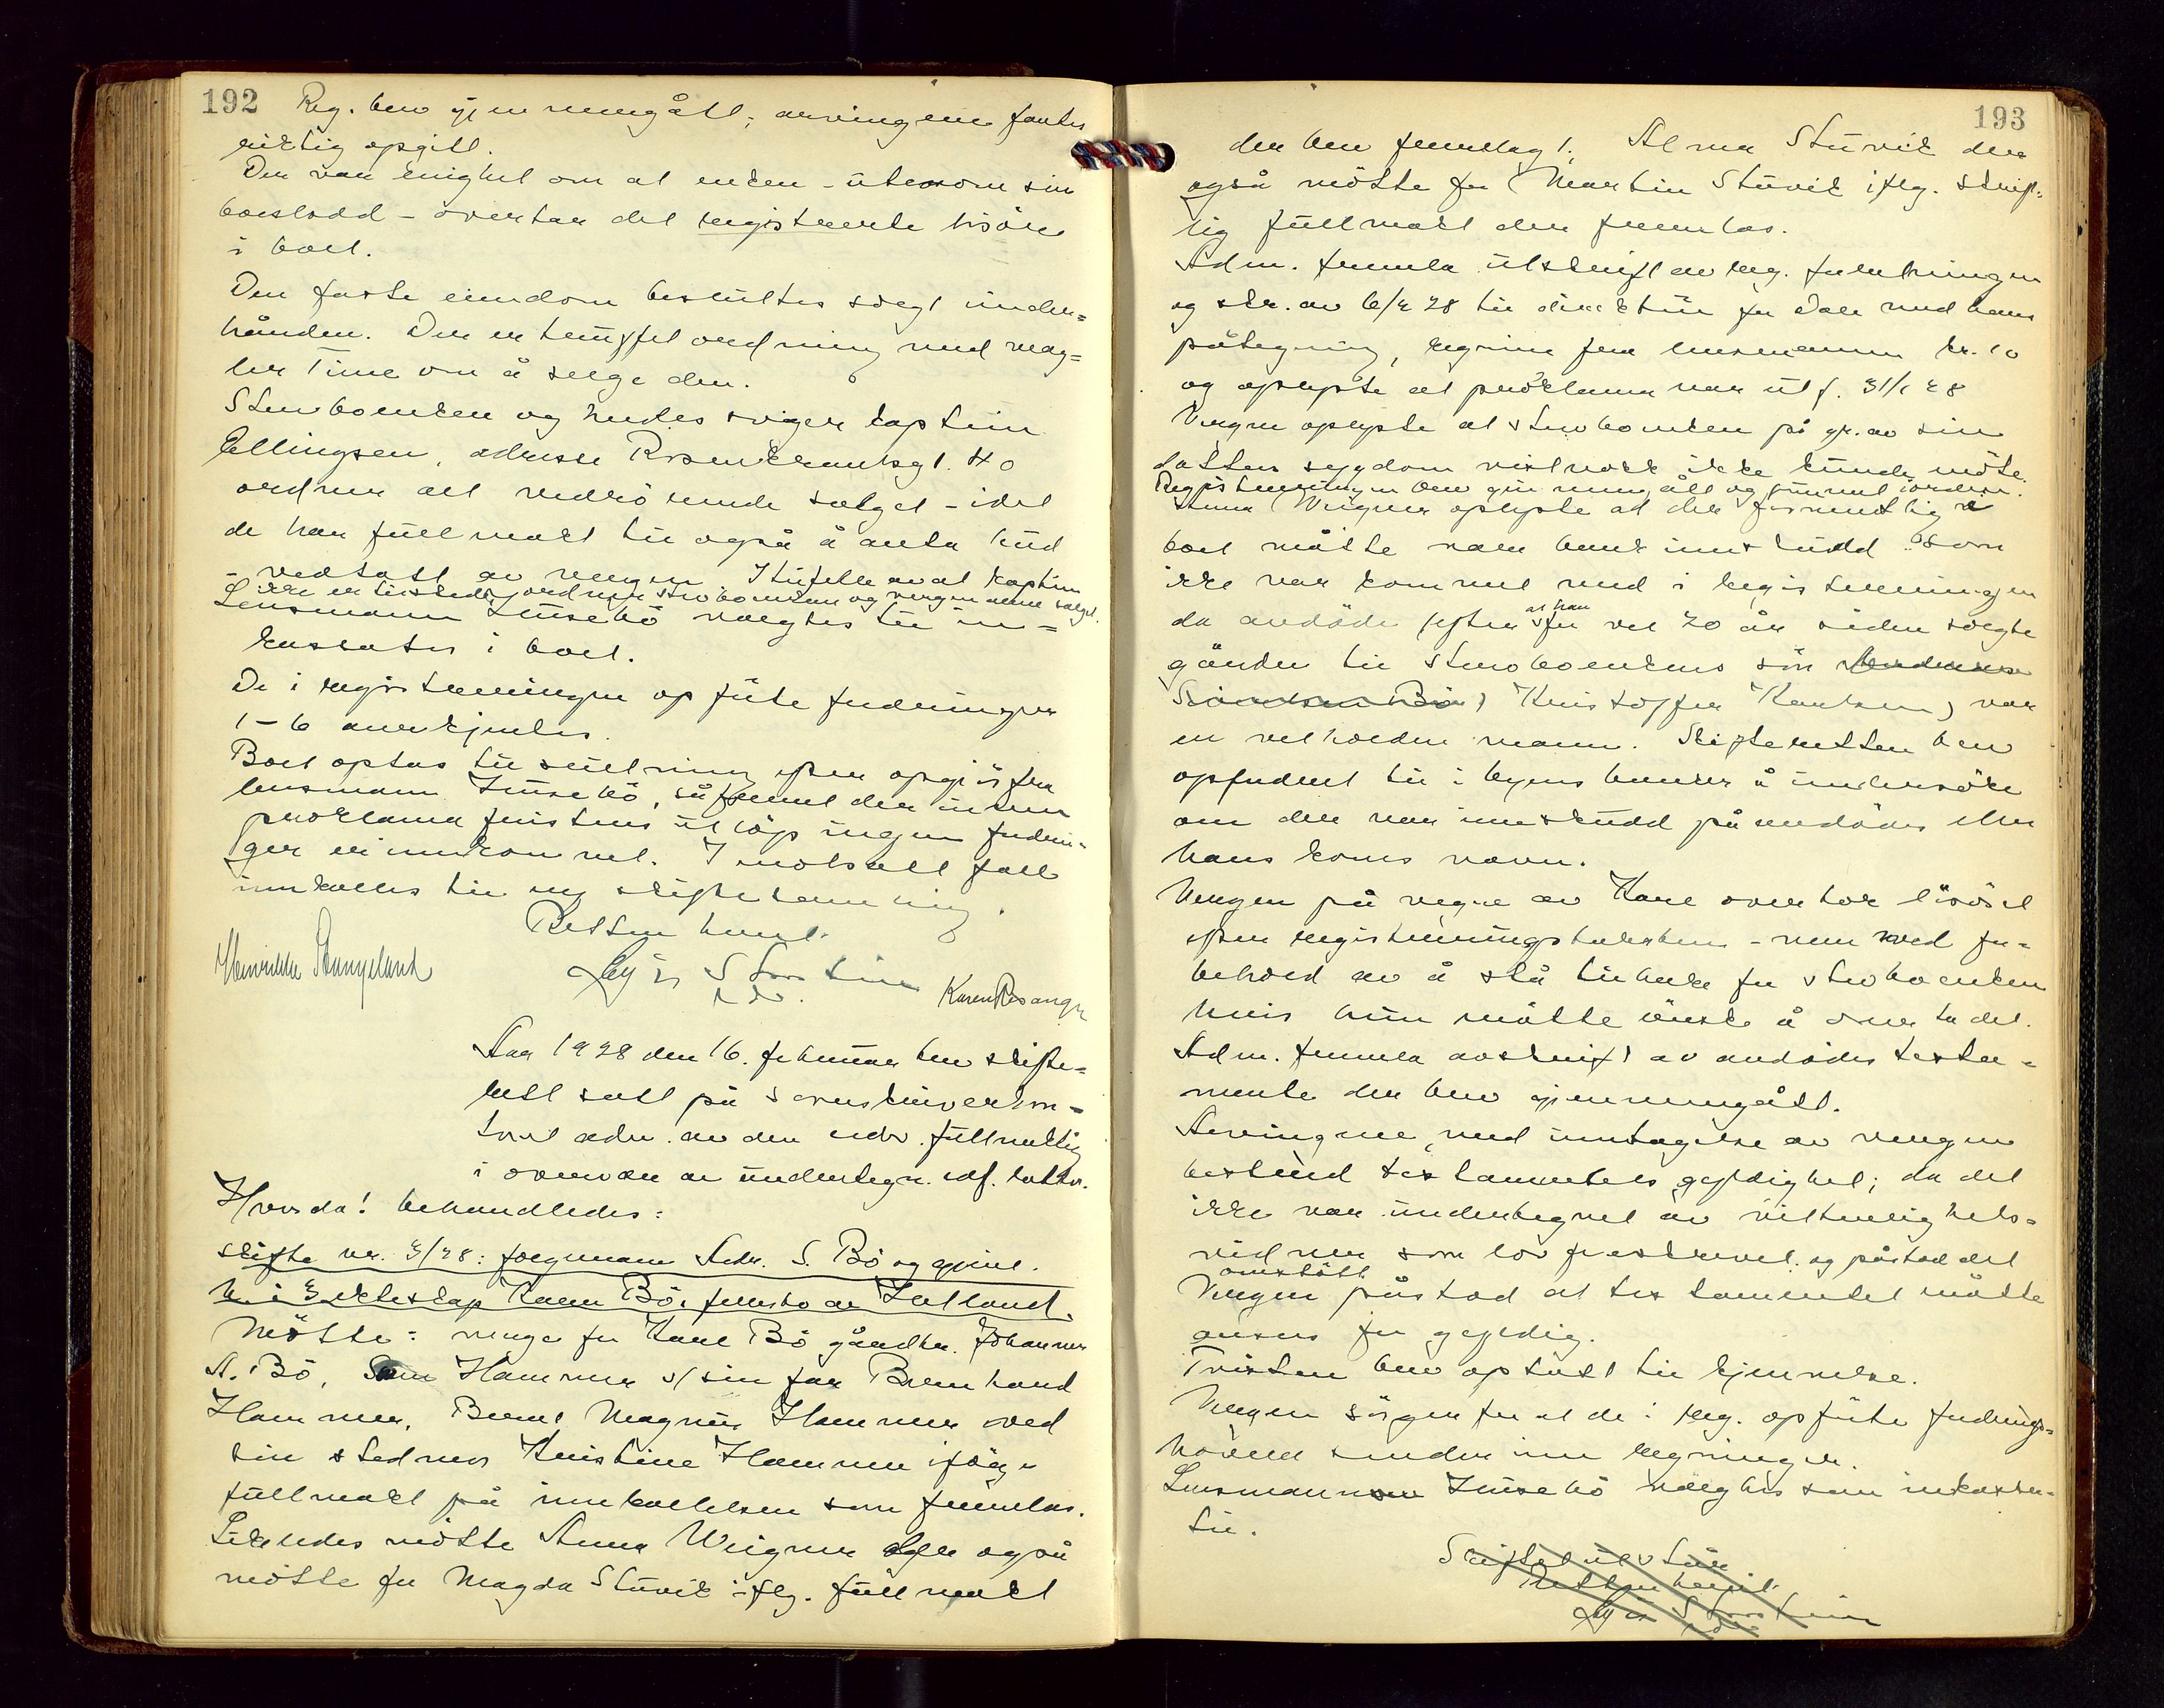 192
Reg. blev gjennemgått; arvingene fantes
riktig opgitt.
Der var enighet om at enken - utenom sin
boeslodd - overtar det registrerte lösöre
i boet.
Den faste eiendom besluttes solgt under=
hånden. Der er truffet ordning med meg=
ler Time om å selge den.
Stervboenken og hendes sviger kaptein
Ellingsen, adresse Rosenkrantzgt. 40
ordner alt vedrörende salget - idet
de har fullmakt til også å anta bud
- vedtatt av vergen. I tilfelle av at kaptein
ikke er tilstede, ordner stervboenken og vergen alene salget.
Lensmann Husebö valgtes til in=
kassator i boet.
De i registreringen opförte fordringer
1-6 anerkjentes.
Boet optas til slutning efter opgjör fra
lensmann Husebö, såfremt der innen
proklama fristens utlöp ingen fordrin=
ger er innkommet. I motsatt fall
innkalles til ny skiftesamling.
Retten hevet.
Karen Risanger
Aar 1928 den 16. februar blev skifte=
rett satt på sorenskriverkon=
toret adm. av den edsv. fullmektig
i overvær av undertegn. edf. rettsv.
Hvorda! behandledes:
skifte nr. 3/28: forgjenmann Andr. S. Bö og gjenl.
h. i Ekteskap Karen Bö, fellesbo av Jelland.
Mötte: verge for Karl Bö gårdbr. Johannes
A. Bö, Hammer v/ sin far Bernhard
Hammer, Bernt Magnus Hammer ved
sin stedmor Kristine Hammer ifölge
fullmakt på innkallelsen som fremlas.
Likeledes mötte Anna Weigner der også
mötte for Magda Stuvik iflg. fullmakt
193
der blev fremlagt, Alma Stuvik der
også mötte for Martin Stuvik iflg. skrift=
lig fullmakt der fremlas.
Adm. fremla utskrift av reg. forretningen
og skr. av 6/2 28 til direktör for Dale med hans
påtegning, regning fra lensmannen kr. 10
og oplyste at proklama var utf. 31/1 28
Vergen oplyste at stervboenken på gr. av sin
datters sygdom vistnok ikke kunde möte.
Registreringen blev gjennemgått og funnet i orden.
Anna Weigner oplyste at der formentlig i
boet måtte være bankinnskudd som
ikke var kommet med i registreringen
da avdöde (efter at han for vel 20 år siden solgte
gården til stervboenkens sön
Kristoffer Karlsen) var
en velholden mann. Skifteretten blev
opfordret til i byens banker å undersöke
om der var innskudd på avdödes eller
hans kones navn.
Vergen på vegne av Karl overtok lösöret
efter registreringstaksten - men med for=
behold av å stå tilbake for stervboenken
hvis hun måtte önske å overta det.
Adm. fremla avskrift av avdödes testa=
mente der blev gjennemgått.
Arvingene, med unntagelse av vergen
bestred testamentets gyldighet; da det
ikke var undertegnet av vitterlighets=
vidner som lov foreskrevet. og påstod det
omstött
Vergen påstod at testamentet måtte
anses for gyldig.
Tvisten blev optatt til kjennelse.
Vergen sörger for at de i reg. opförte fordrings=
havere sender inn regninger.
Lensmannen Husebö valgtes som inkassa=
tor.
Skiftet utsatt
Retten hevet.